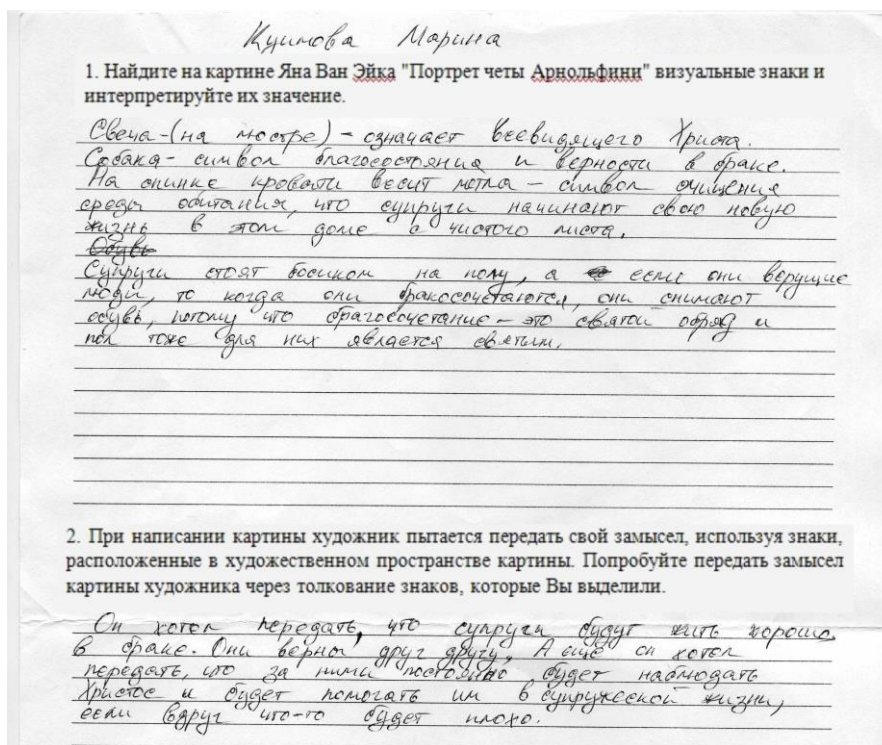 Куимова Марина
1. Найдите на картине Яна Ван Эйка "Портрет четы Арнольфини" визуальные знаки и
интерпретируйте их значение.
Свеча-(на люстре) - означает всевидящего Христа.
Собака- символ благосостояния и верности в браке.
На спинке кровати весит метла - символ очищения
среды обитания, что супруги начинают свою новую
жизнь в этом доме с чистого листа.
Обувь
Супруги стоят босиком на полу, а если они верущие
люди, то когда они бракосочетаются, они снимают
обувь, потому что брагосочетание - это святой обряд и
пол тоже для них является святым.
2. При написании картины художник пытается передать свой замысел, используя знаки,
расположенные в художественном пространстве картины. Попробуйте передать замысел
картины художника через толкование знаков, которые Вы выделили.
Он хотел передать, что супруги будут жить хорошо
в браке. Они верны друг другу, А ещё он хотел
передать, что за ними постоянно будет наблюдать
Христос и будет помогать им в супружеской жизни,
если вдруг что-то будет плохо.